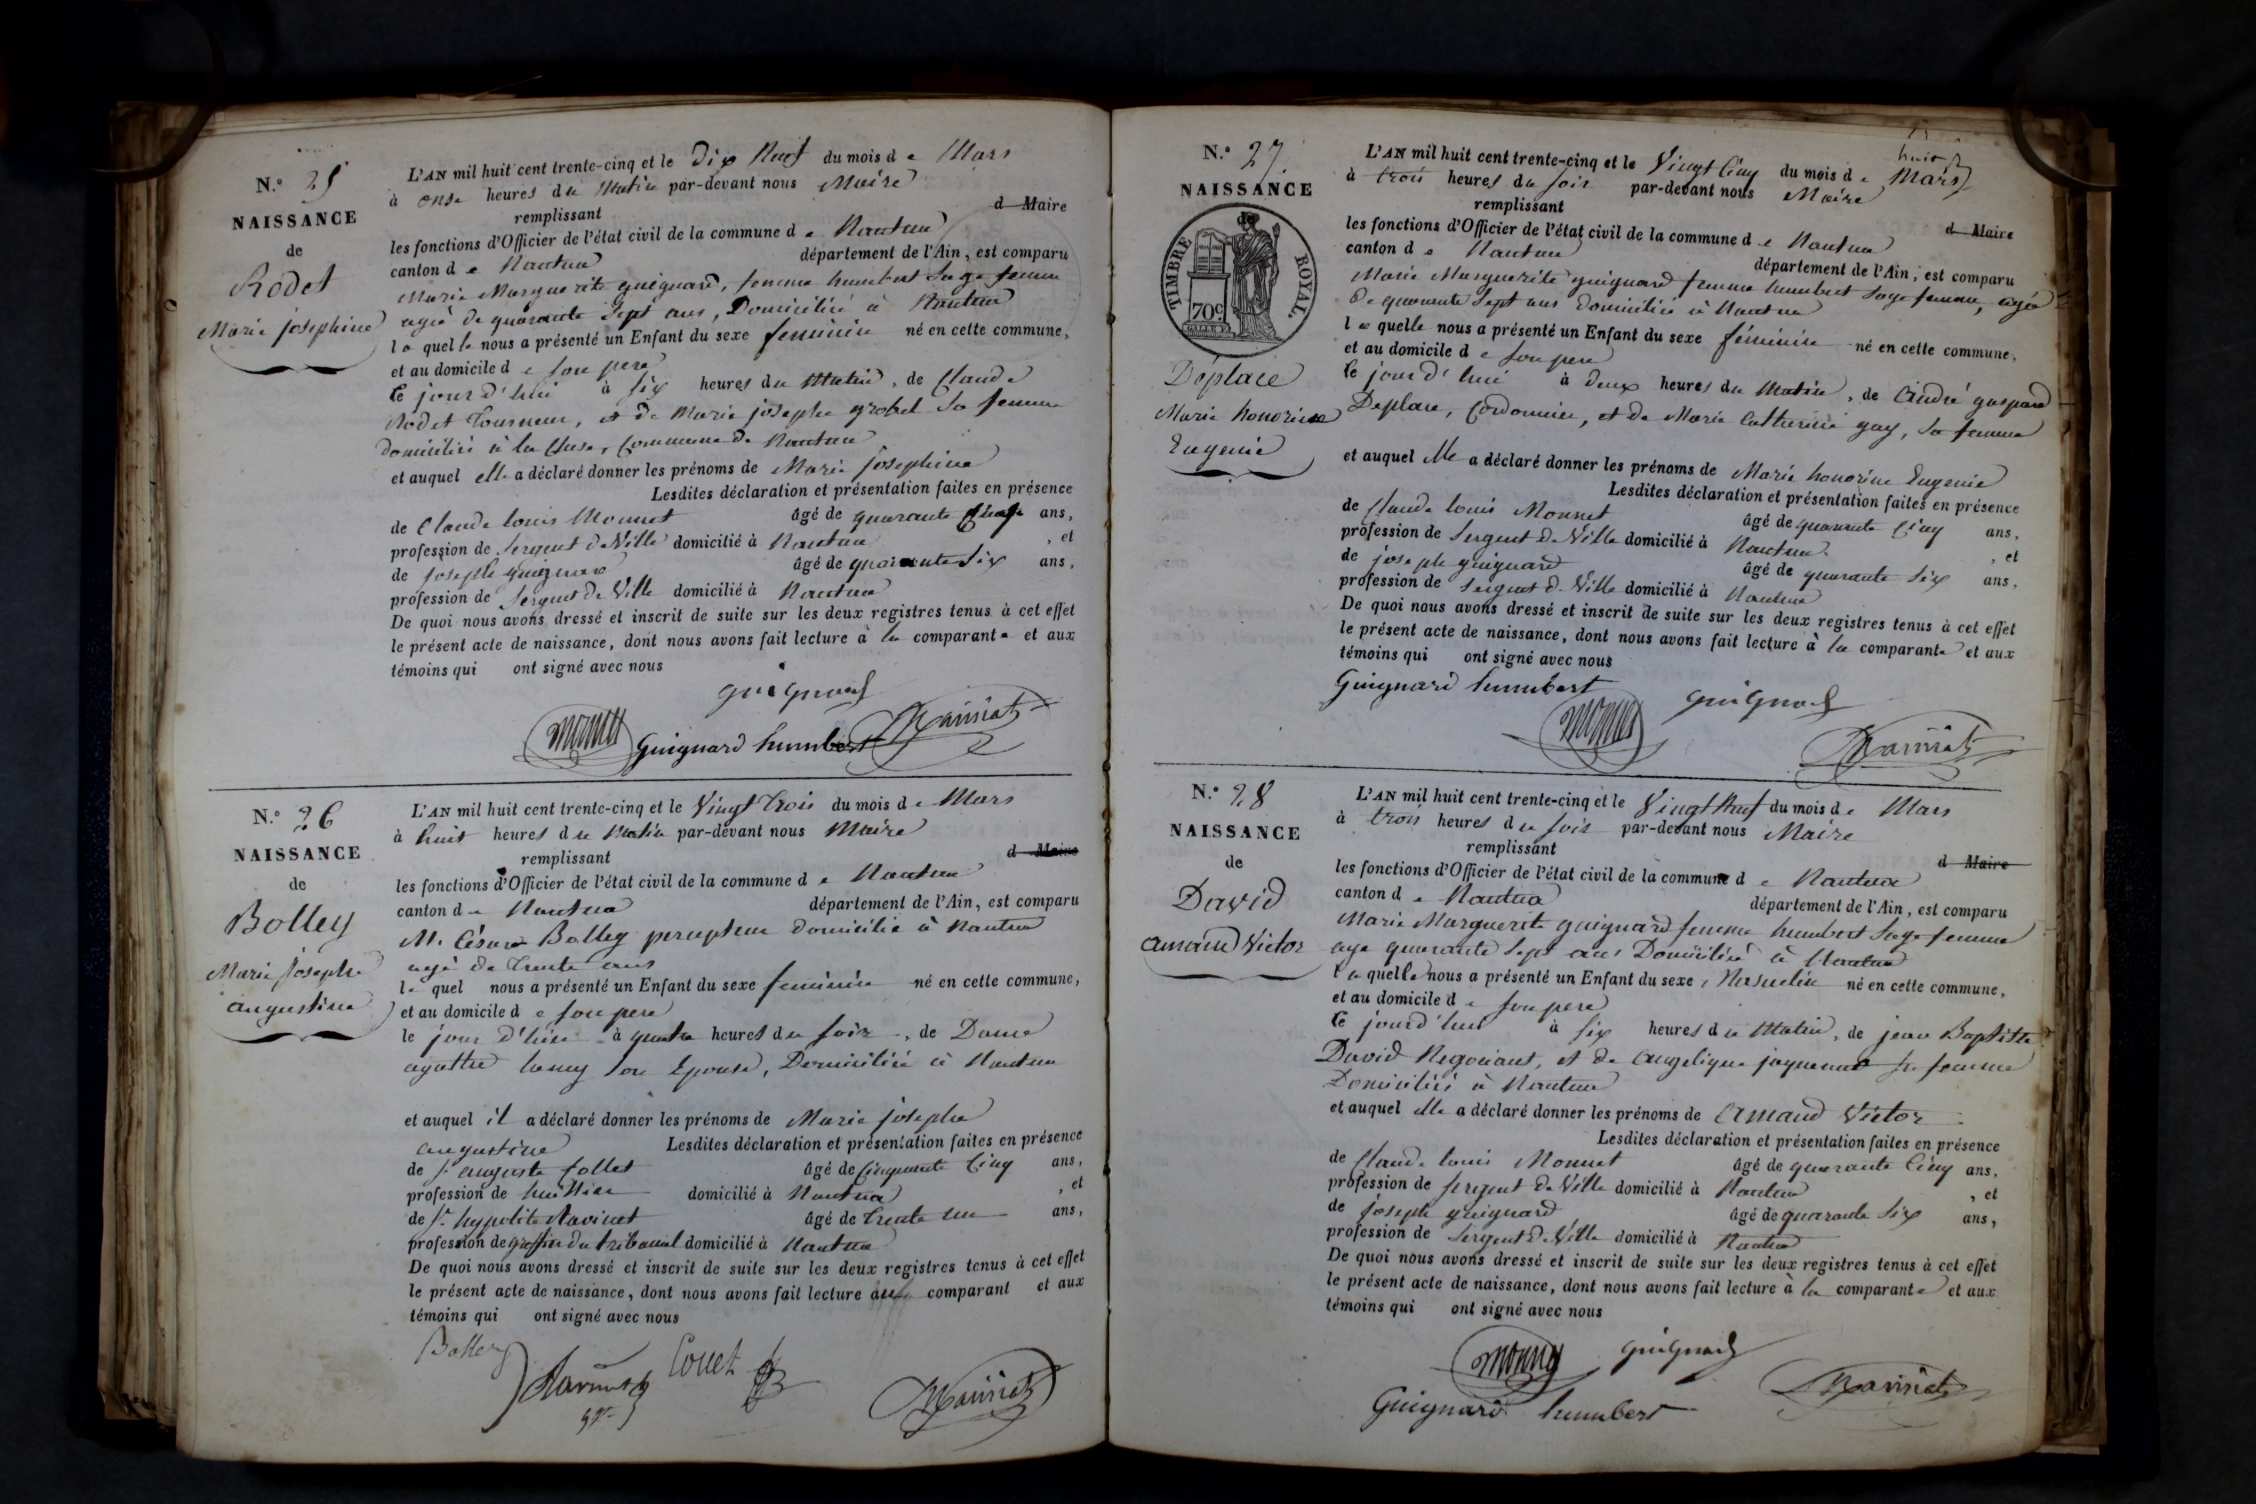 N.º 25
NAISSANCE
de
Rodet
Marie josephine
L'AN mil huit cent trente-cinq et le Dix Neuf du mois de Mars
à onse heures du Matin par-devant nous Maire
remplissant d Maire
les fonctions d'Officier de l'état civil de la commune de Nantua
canton de Nantua département de l'Ain, est comparu
Marie Marguerite guignard, femme humbert Sage femme
agée de quarante Sept ans, Domiciliée à Nantua
laquelle nous a présenté un Enfant du sexe feminin né en cette commune,
et au domicile de son pere
Ce jourd'hui à six heures du Matin, de Claude
Rodet Tourneur, et de Marie josephe grobel Sa femme
domiciliés à la Cluse, Commune de Nantua
et auquel elle a déclaré donner les prénoms de Marie josephine
Lesdites déclaration et présentation faites en présence
de Claude louis Monnet âgé de quarante ans,
profession de Sergent de Ville domicilié à Nantua, et
de joseph guignard âgé de quarante Six ans,
profession de Sergent de Ville domicilié à Nantua
De quoi nous avons dressé et inscrit de suite sur les deux registres tenus à cet effet
le présent acte de naissance, dont nous avons fait lecture à la comparante et aux
témoins qui ont signé avec nous
guignard
monnet Guignard humbert
N.º 26
NAISSANCE
de
Bolley
Marie Josephe
augustine
L'AN mil huit cent trente-cinq et le Vingt Trois du mois de Mars
à huit heures du Matin par-devant nous Maire
remplissant d Maire
les fonctions d'Officier de l'état civil de la commune de Nantua
canton de Nantua département de l'Ain, est comparu
M. César Bolley percepteur domicilié à Nantua
agé de trente ans
lequel nous a présenté un Enfant du sexe feminin né en cette commune,
et au domicile de son pere
le jour d'hier à quatre heures du soir, de Dame
agathe son Epouse, Domiciliée à Nantua
et auquel il a déclaré donner les prénoms de Marie josephe
augustine Lesdites déclaration et présentation faites en présence
de Sr auguste âgé de Cinquante Cinq ans,
profession de huissier domicilié à Nantua, et
de Sr hypolite Ravinet âgé de Trente un ans,
profession de greffier du tribunal domicilié à Nantua
De quoi nous avons dressé et inscrit de suite sur les deux registres tenus à cet effet
le présent acte de naissance, dont nous avons fait lecture au comparant et aux
témoins qui ont signé avec nous
Bolley
Ravinet
N.º 27
NAISSANCE
TIMBRE ROYAL.
70c
Déplace
Marie honorine
Eugenie
L'AN mil huit cent trente-cinq et le Vingt Cinq du mois de Mars
huit
à trois heures du soir par-devant nous Maire
remplissant d Maire
les fonctions d'Officier de l'état civil de la commune de Nantua
canton de Nantua département de l'Ain, est comparu
Marie Marguerite guignard femme humbert Sage femme, agée
de quarante Sept ans Domiciliée à Nantua
laquelle nous a présenté un Enfant du sexe féminin né en cette commune,
et au domicile de son pere
Ce jourd'hui à deux heures du Matin, de André gaspard
Deplace, Cordonnier, et de Marie Catherine gay, Sa femme
et auquel elle a déclaré donner les prénoms de Marie honorine Eugenie
Lesdites déclaration et présentation faites en présence
de Claude louis Monnet âgé de quarante Cinq ans,
profession de Sergent de Ville domicilié à Nantua, et
de joseph guignard âgé de quarante Six ans,
profession de Sergent de Ville domicilié à Nantua
De quoi nous avons dressé et inscrit de suite sur les deux registres tenus à cet effet
le présent acte de naissance, dont nous avons fait lecture à la comparante et aux
témoins qui ont signé avec nous
Guignard humbert
monnet guignard
N.º 28
NAISSANCE
de
David
amand Victor
L'AN mil huit cent trente-cinq et le Vingt Neuf du mois de Mars
à trois heures du soir par-devant nous Maire
remplissant d Maire
les fonctions d'Officier de l'état civil de la commune de Nantua
canton de Nantua département de l'Ain, est comparu
Marie Marguerite guignard femme humbert Sage femme
age quarante Sept ans Domiciliée à Nantua
laquelle nous a présenté un Enfant du sexe Masculin né en cette commune,
et au domicile de son pere
Ce jourd'hui à six heures du Matin, de jean Baptiste
David Negociant, et de angelique Sa femme
Domiciliés à Nantua
et auquel elle a déclaré donner les prénoms de amand Victor
Lesdites déclaration et présentation faites en présence
de Claude louis Monnet âgé de quarante Cinq ans,
profession de Sergent de Ville domicilié à Nantua, et
de joseph guignard âgé de quarante Six ans,
profession de Sergent de Ville domicilié à Nantua
De quoi nous avons dressé et inscrit de suite sur les deux registres tenus à cet effet
le présent acte de naissance, dont nous avons fait lecture à la comparante et aux
témoins qui ont signé avec nous
monnet guignard
Guignard humbert